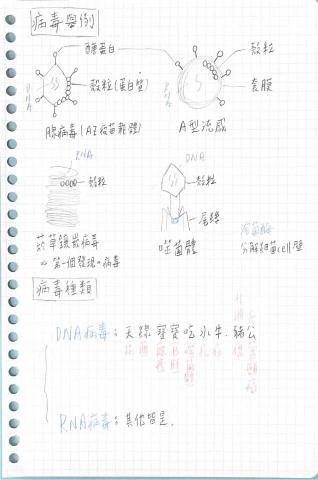 病毒舉例
醣蛋白
殼粒
殼粒(蛋白質)
套膜
DNA
RNA
腺病毒(AZ疫苗載體)
A型流感
RNA
DNA
殼粒
殼粒
尾絲
溶菌酶
菸草鑲嵌病毒
噬菌體
分解細菌cell壁
⇒ 第一個發現の病毒
病毒種類
DNA病毒:天線寶寶吃水牛、豬公
RNA病毒:其他皆是.